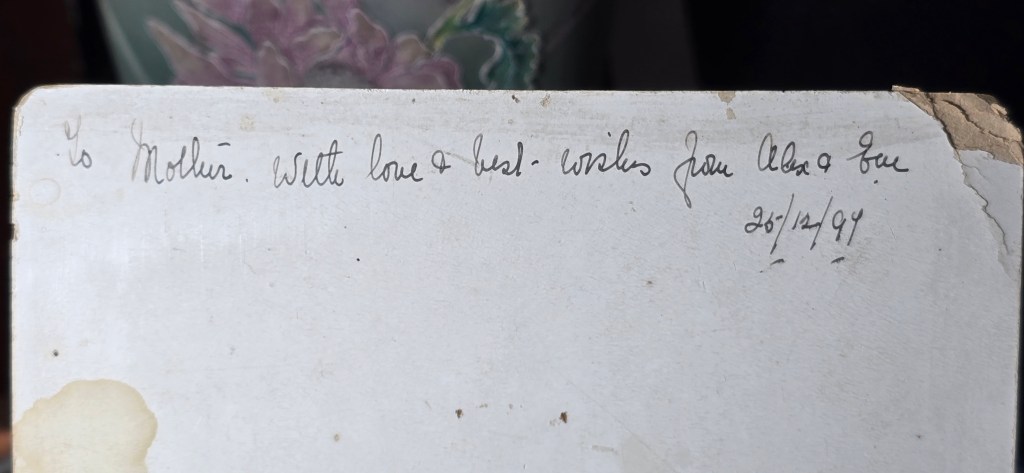 To Mother. With love & best wishes from Alex & Eve
25/12/99